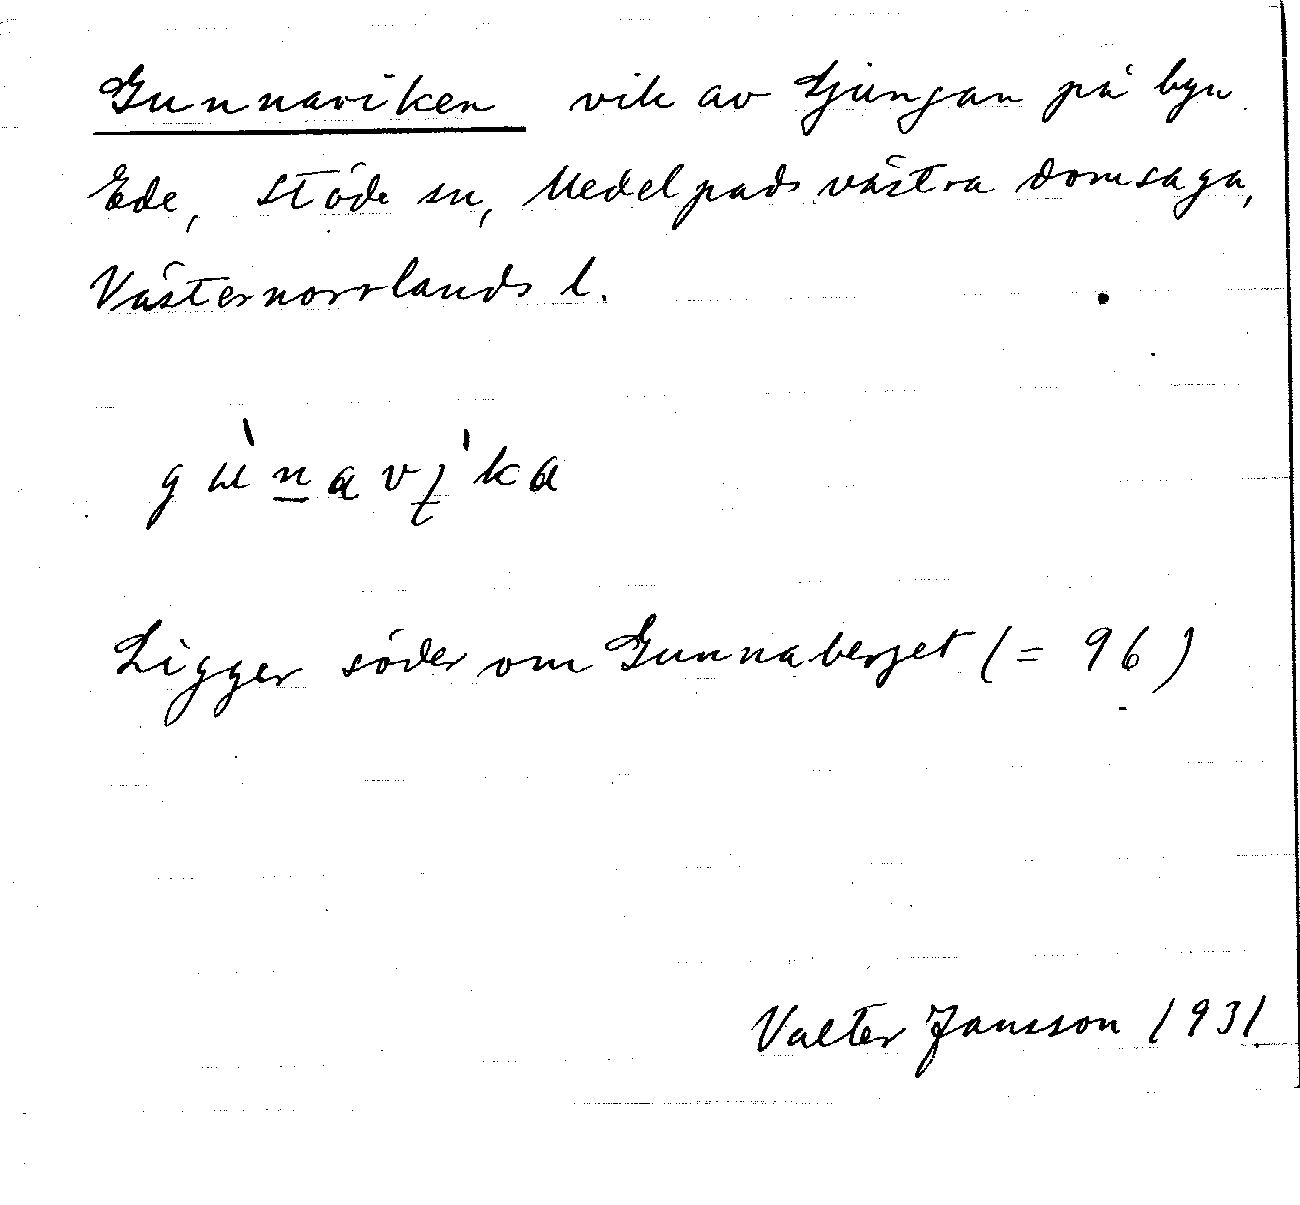 Gunnaviken vik av Ljungan på byn
Ede, Stöde sn, Medelpads västra domsaga,
Västernorrlands l.
gu̇̀n̲avı̨̀ka
Ligger söder om Gunnaberget (= 96)
Valter Jansson 1931